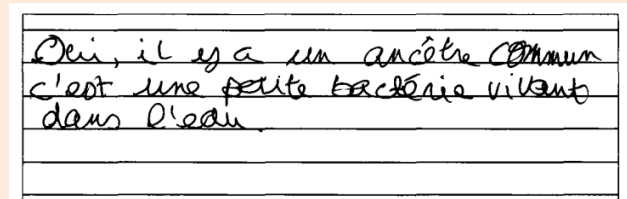 Oui, il y a un ancêtre commun
c'est une petite bactérie vivant
dans l'eau.